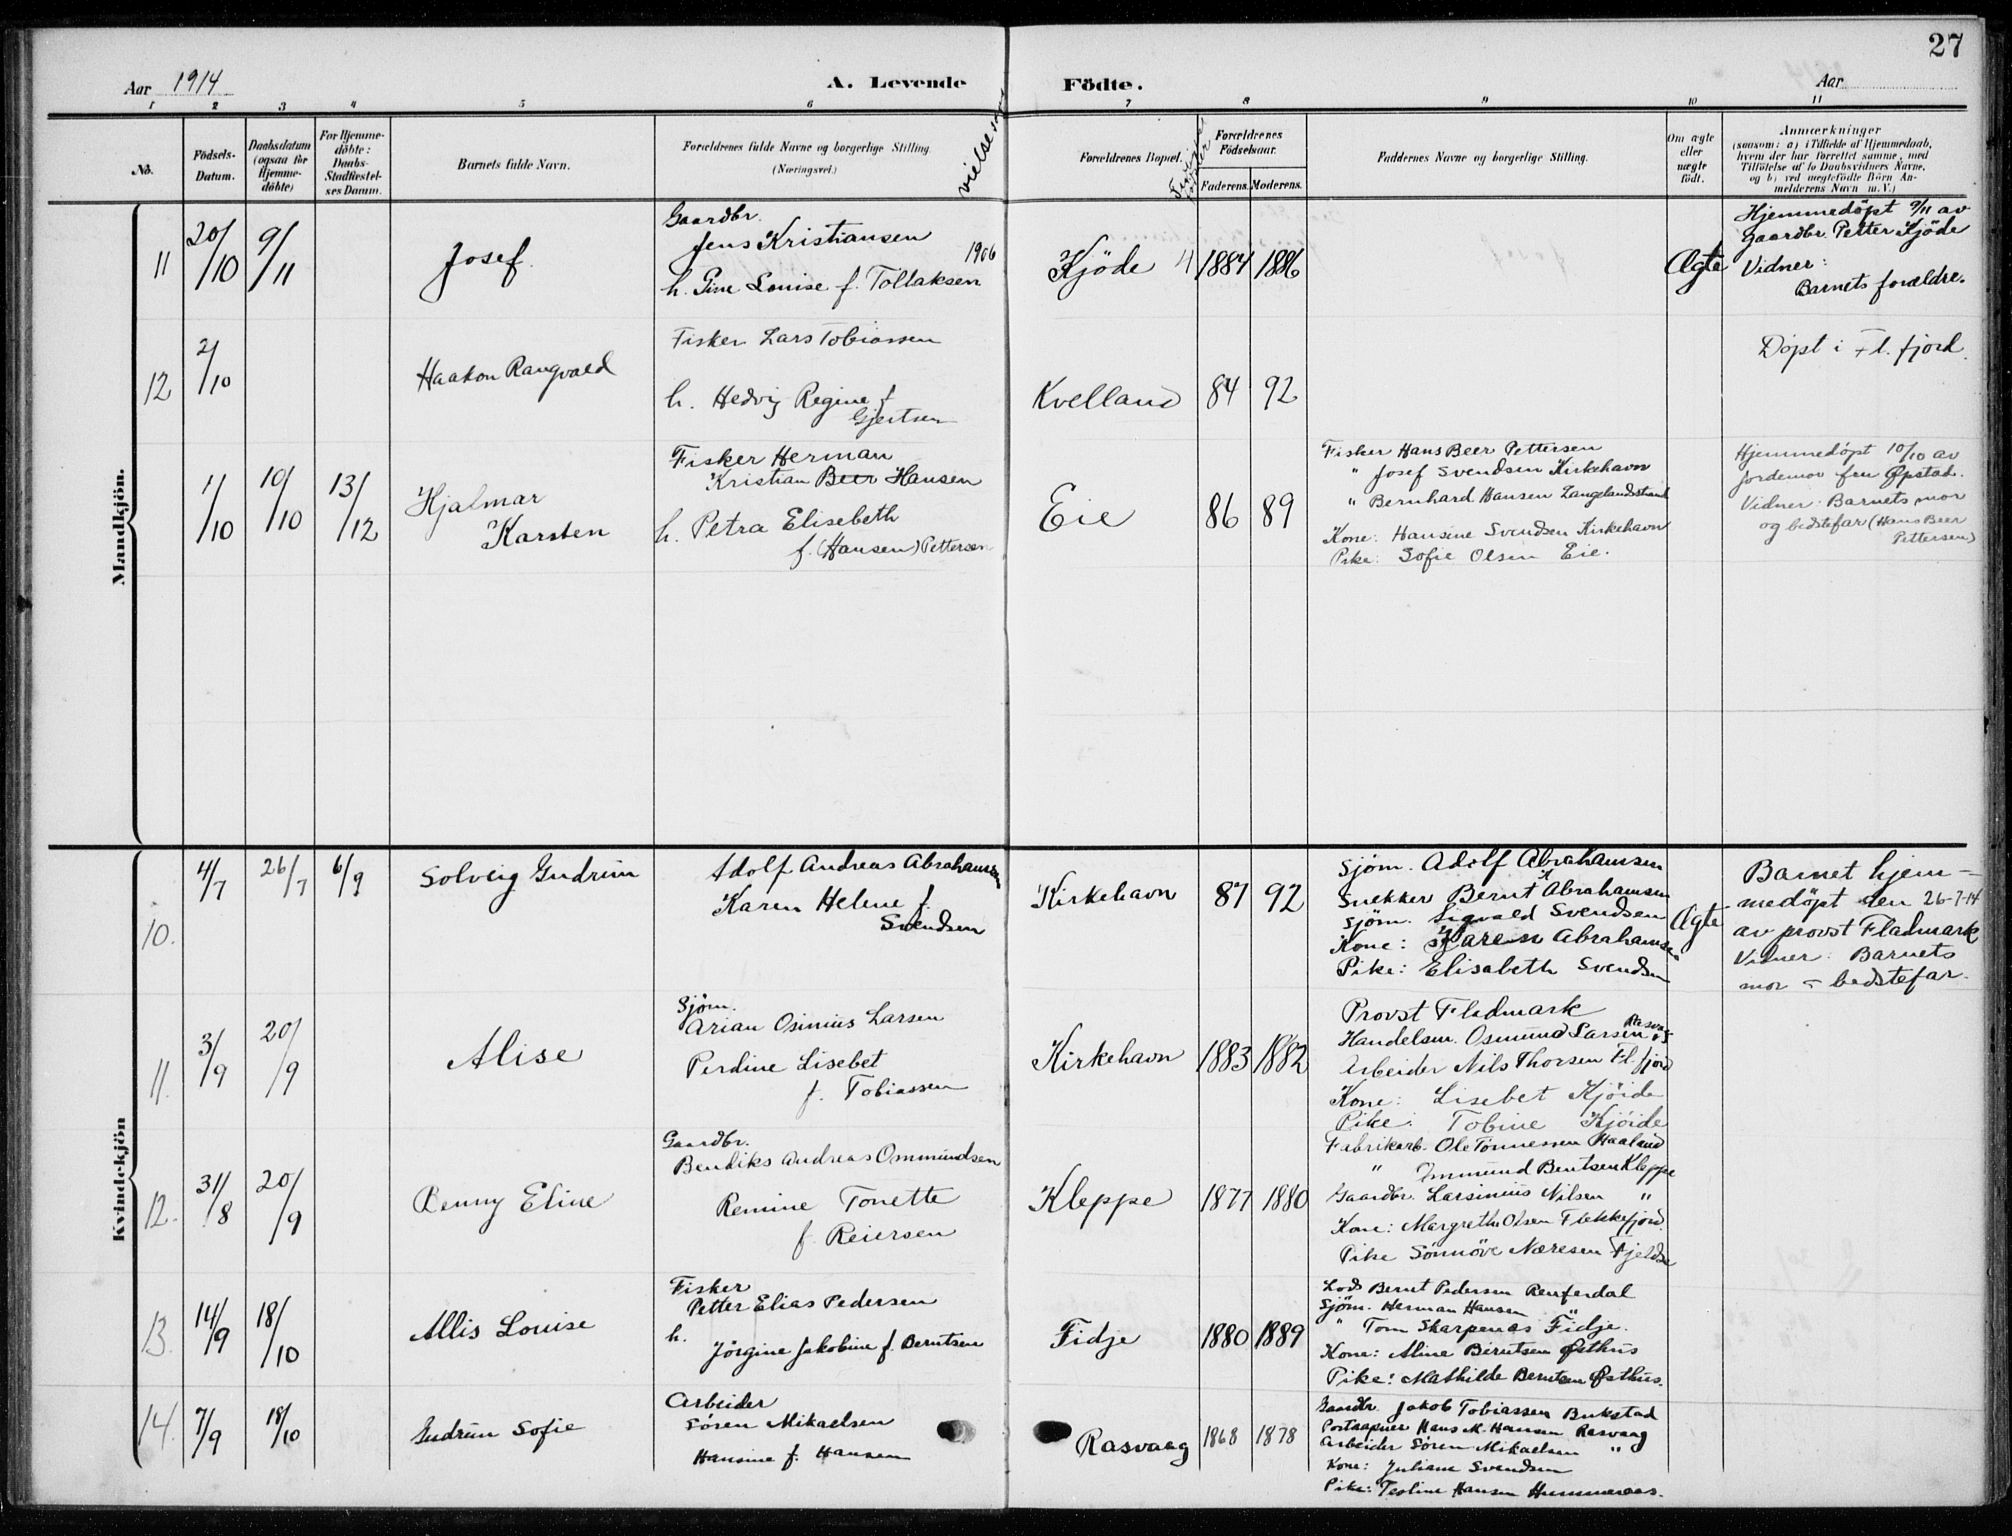 27
Aar 1914
A. Levende
Födte.
Aar
1 2 3 4 5 6 7 8 9 10 11
No.
Födsels-
Datum.
Daabsdatum
(ogsaa for
Hjemme-
döbte)
For Hjemme-
döbte:
Daabs-
Stadfæstel-
ses Datum.
Barnets fulde Navn.
Forældrenes fulde Navne og borgerlige Stilling
(Næringsvei.)
vielse
Forældrenes Bopæl.
Forældrenes
Födselsaar.
Faderens.
Moderens.
Faddernes Navne og borgerlige Stilling.
Om ægte
eller
uægte
födt.
Anmærkninger
(saasom: a) i Tilfælde af Hjemmedaab,
hvem der har forrettet samme, med
Tilföielse af to Daabsvidners Navne,
og b) ved uegtefödte Börn An-
melderens Navn m. V.)
Mandkjön.
11
20/10
9/11
Josef
Gaardbr.
Jens Kristiansen
1906
h. Gine Louise f. Tollaksen
Kjöde
4
1884
1886
Ægte
Hjemmedøpt 9/11 av
Gaardbr. Petter Kjöde
Vidner:
Barnets forældre.
12
2/10
Haakon Rangvald
Fisker Lars Tobiassen
h. Hedvig Regine f
Gjertsen
Kvelland
84
92
Døpt i Fl. fjord.
1/10
10/10
13/12
Hjalmar
Karsten
Fisker Herman
Kristian Beer Hansen
h. Petra Elisebeth
f. (Hansen) Pettersen
Eie
86
89
Fisker Hans Beer Pettersen
" Josef Svendsen Kirkehavn
" Bernhard Hansen Langelandsstrand
Kone: Hansine Svendsen Kirkehavn
Pike: Sofie Olsen Eie.
Hjemmedøpt 10/10 av
Jordemor fru Øpstad.
Vidner: Barnets mor
og bedstefar (Hans Beer
Pettersen)
Kvindekjön
10.
4/7
26/7
6/9
Solveig Gudrun
Adolf Andreas Abrahamsen
Karen Helene f.
Svendsen
Kirkehavn
87
92
Sjöm. Adolf Abrahamsen
Snekker Bernt A Abrahamsen
Sjöm. Sigvald Svendsen
Kone: Karen Abrahamsen
Pike: Elisabeth Svendsen
Ægte
Barnet hjem-
medöpt den 26-7-14
av provst Fladmark
Vidner: Barnets
mor - bedstefar.
11.
3/9
20/9
Alise
Sjöm.
Arian Osinius Larsen
Perdine Lisebet
f. Tobiassen
Kirkehavn
1883
1882
Provst Fladmark
Handelsm. Osmund Larsen Rasvaag
Arbeider Nils Thorsen Fl. fjord
Kone: Lisebet Kjöide
Pike: Tobine Kjöide
12.
31/8
20/9
Benny Eline
Gaardbr.
Bendiks Andreas Ommundsen
Remine Tonette
f. Reiersen
Kleppe
1877
1880
Fabrikarb. Ole Tönnessen Haaland
" Ommund Bentsen Kleppe
Gaardbr. Larsinius Nilsen "
Kone: Margrethe Olsen Flekkefjord.
Pike Sönnöve Næresen Fjeldse
13.
14/9
18/10
Allis Louise
Fisker
Petter Elias Pedersen
h.
Jörgine Jakobine f. Berntsen
Fidje
1880
1889
Lods Bernt Pedersen Renferdal
Sjöm. Herman Hansen
" Tom Skarpenas Fidje.
Kone: Aline Berntsen Østhus
Pike: Mathilde Berntsen Østhus.
14.
7/9
18/10
Gudrun Sofie
Arbeider
Sören Mikaelsen
Hansine f. Hansen
Rasvaag
1868
1878
Gaardbr. Jakob Tobiassen Bukstad
Postaapner Hans M. Hansen Rasvaag
Arbeider Sören Mikaelsen "
Kone: Juliane Svendsen
Pike: Teoline Hansen Hummeraas.